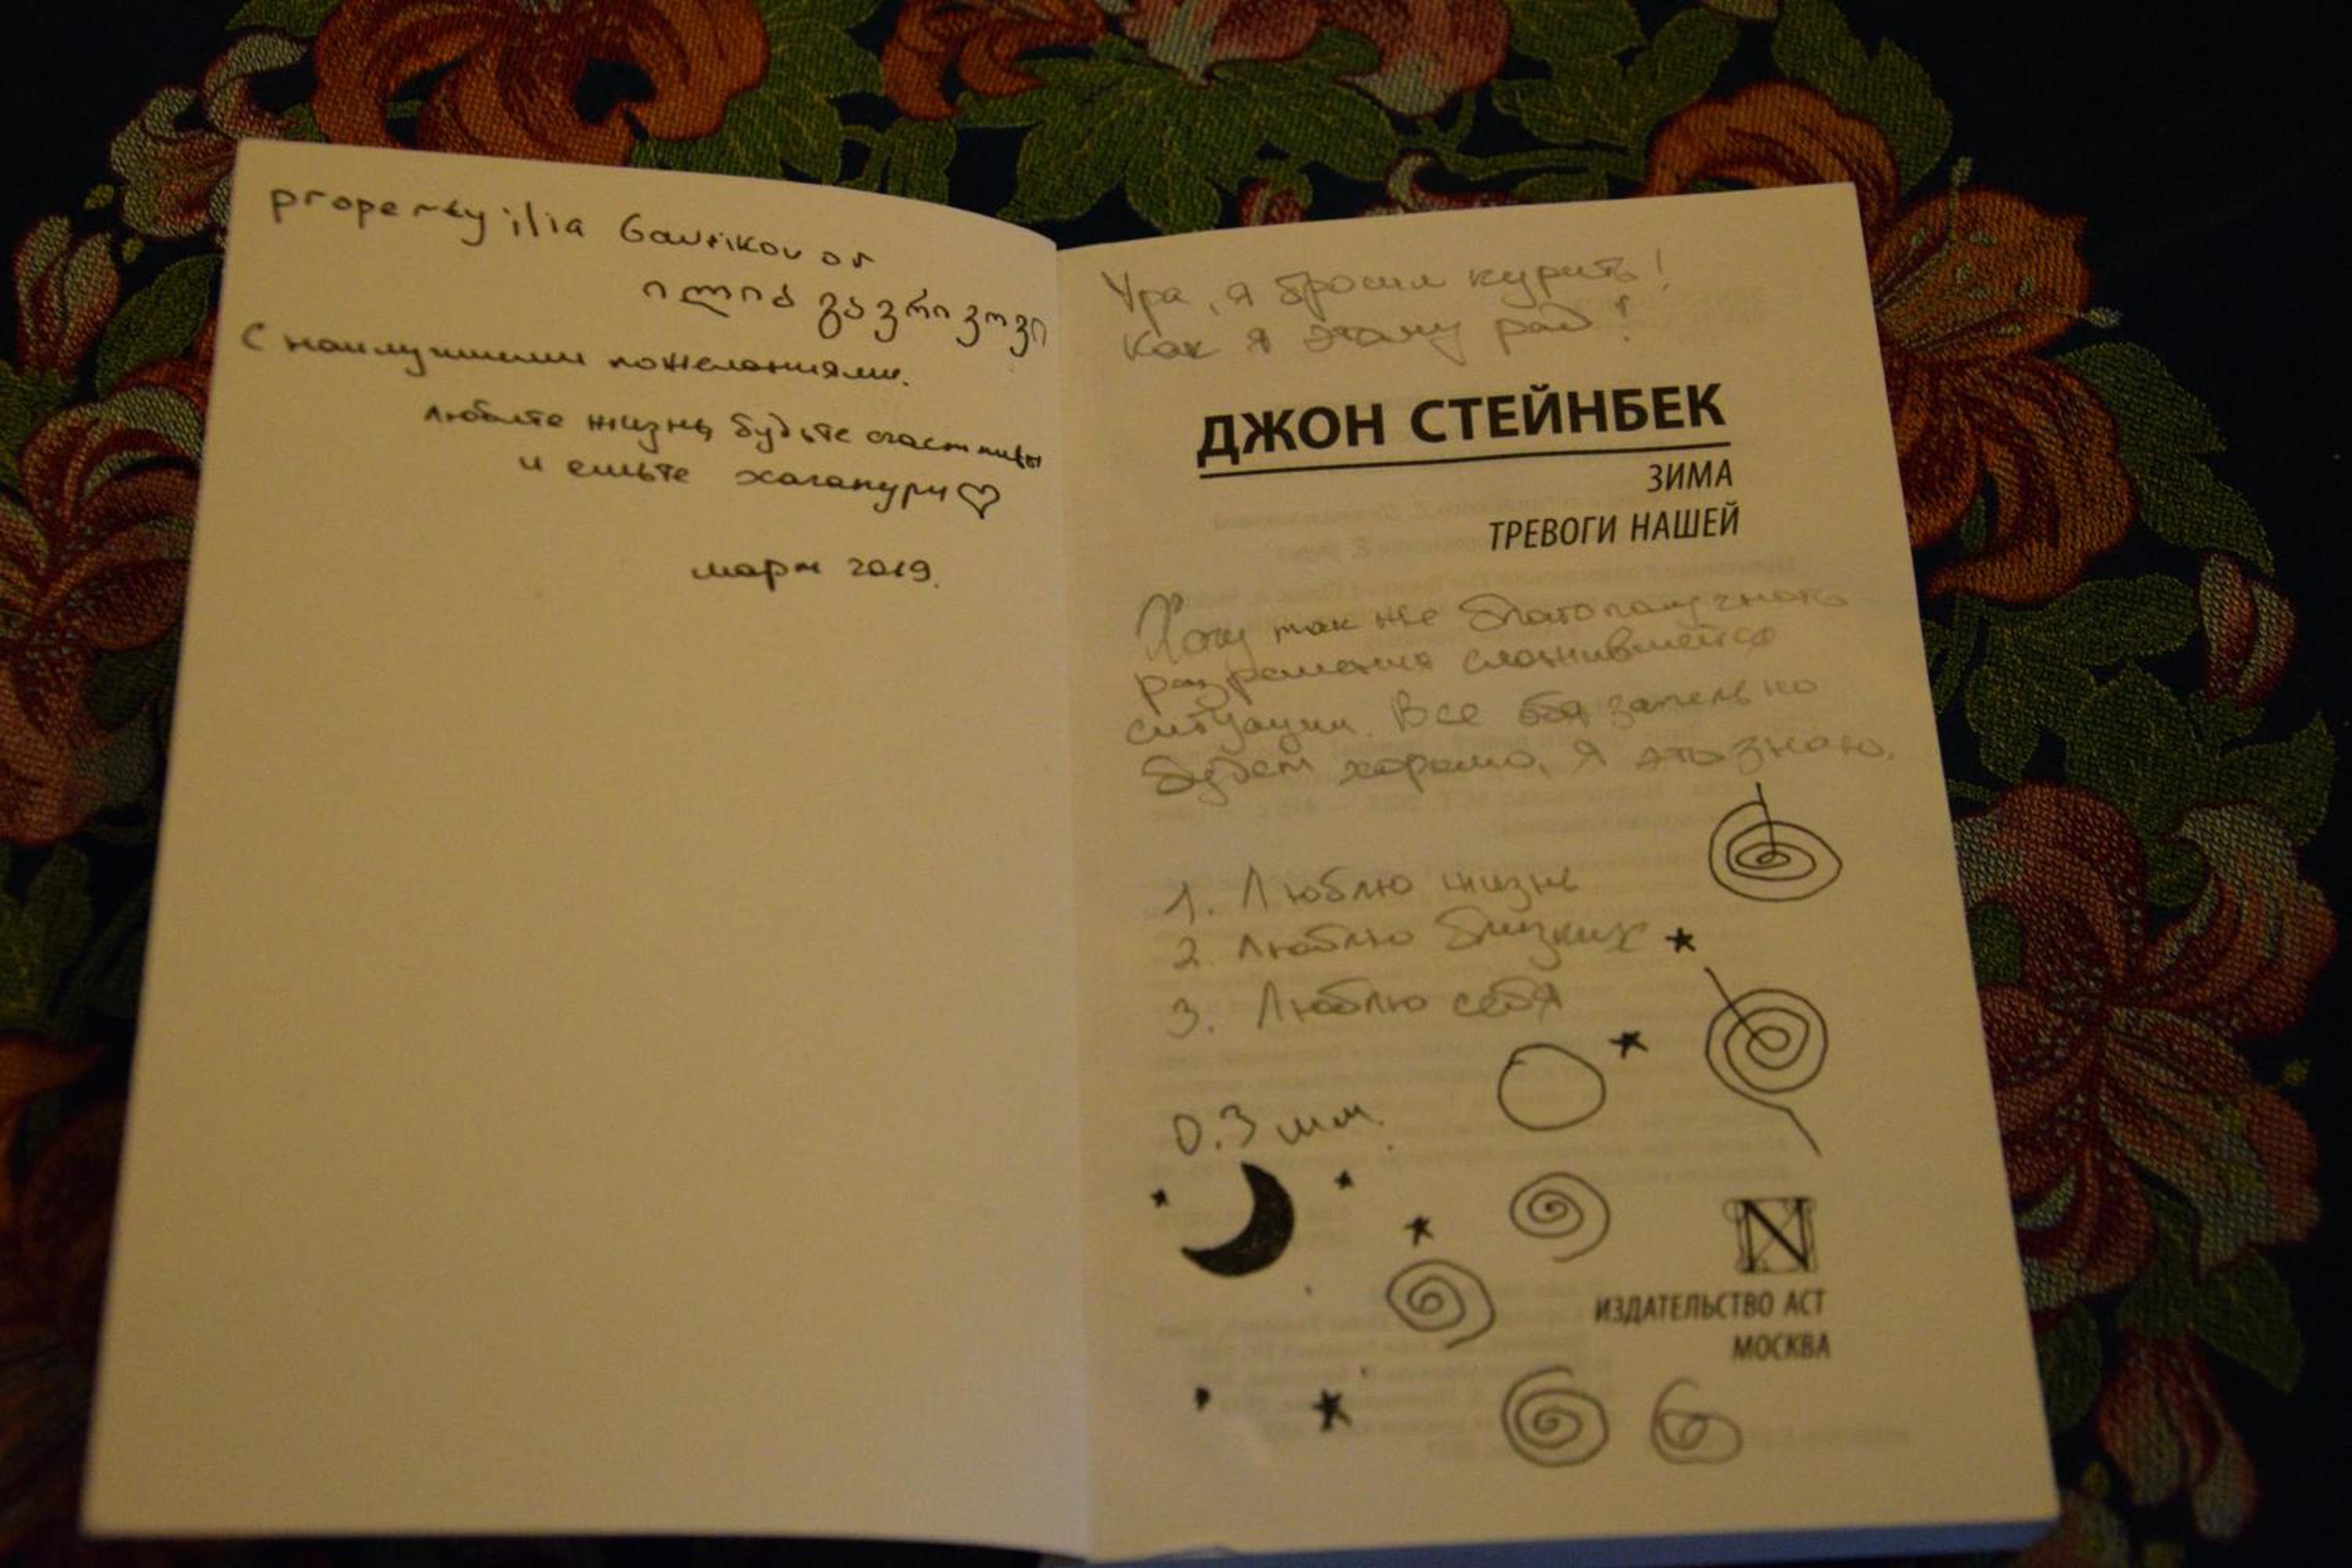 property ilia Gavrikov or
ილია გავრიკოვი
С наилучшими пожеланиями.
Любите жизнь, будьте счастливы
и ешьте хачапури
март 2019.
Ура, я бросил курить!
Как я этому рад!
ДЖОН СТЕЙНБЕК
ЗИМА
ТРЕВОГИ НАШЕЙ
Хочу так же благополучного
разрешения сложившейся
ситуации. Все обязательно
будет хорошо, я это знаю.
1. Люблю жизнь
2. Люблю близких
3. Люблю себя
0.3 мм.
N
ИЗДАТЕЛЬСТВО АСТ
МОСКВА